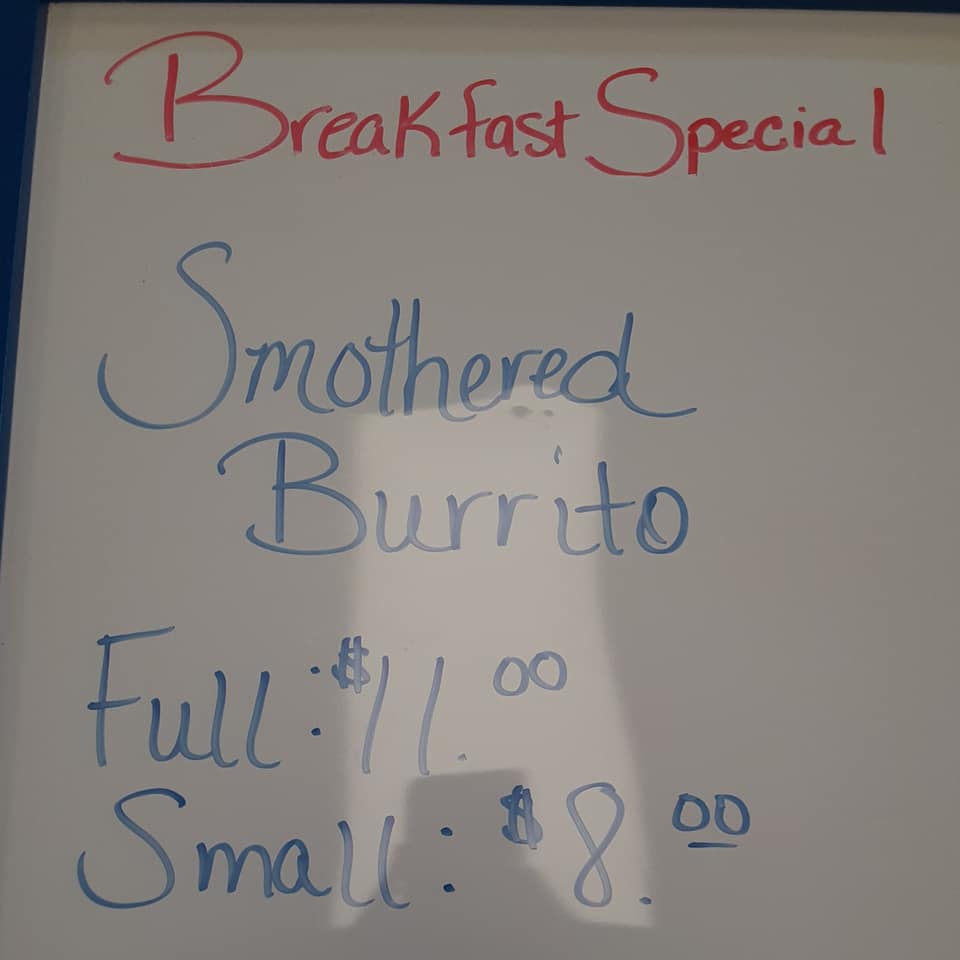 Breakfast Special
Smothered
Burrito
Full: $11.00
Small: $8.00